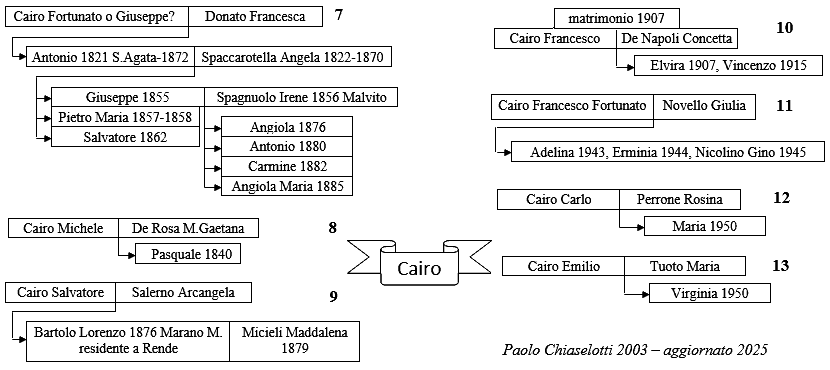 Cairo Fortunato o Giuseppe? Donato Francesca 7
Antonio 1821 S.Agata-1872 Spaccarotella Angela 1822-1870
Giuseppe 1855 Spagnuolo Irene 1856 Malvito
Pietro Maria 1857-1858
Salvatore 1862
Angiola 1876
Antonio 1880
Carmine 1882
Angiola Maria 1885
Cairo Michele De Rosa M.Gaetana 8
Pasquale 1840
Cairo Salvatore Salerno Arcangela 9
Bartolo Lorenzo 1876 Marano M.
residente a Rende
Micieli Maddalena
1879
Cairo
matrimonio 1907
Cairo Francesco De Napoli Concetta 10
Elvira 1907, Vincenzo 1915
Cairo Francesco Fortunato Novello Giulia 11
Adelina 1943, Erminia 1944, Nicolino Gino 1945
Cairo Carlo Perrone Rosina 12
Maria 1950
Cairo Emilio Tuoto Maria 13
Virginia 1950
Paolo Chiaselotti 2003 – aggiornato 2025